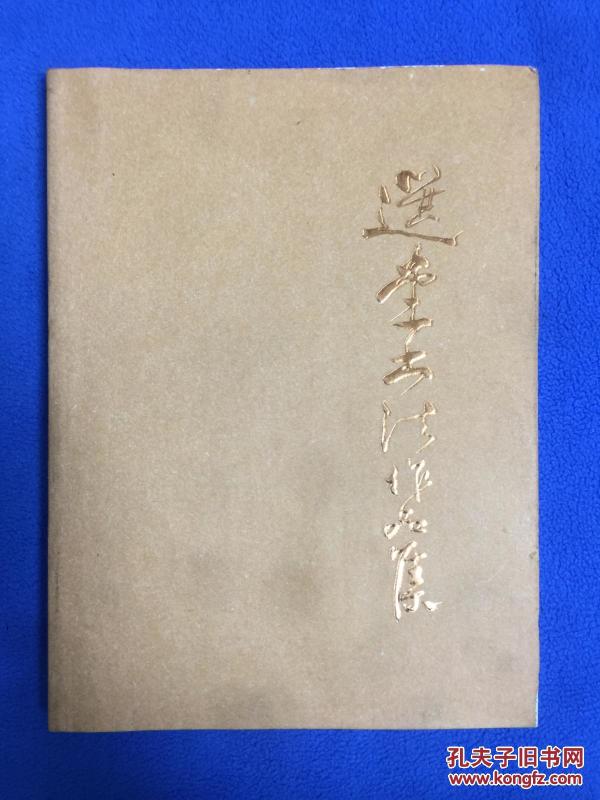 選堂书法作品集
孔夫子旧书网
www.kongfz.com